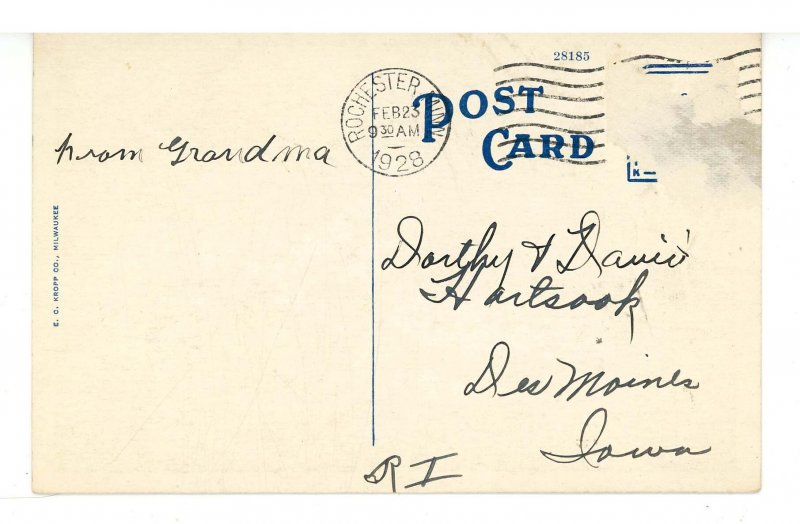 28185
POST
CARD
ROCHESTER, MINN.
FEB 23
9 30 AM
1928
K
From Grandma
Dorthy & Davis
Hartsook
Des Moines
Iowa
R I
E. C. KROPP CO., MILWAUKEE